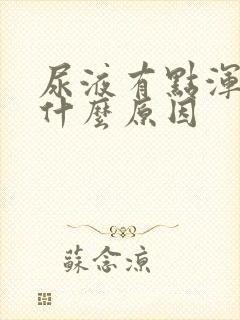 尿液有點渾
什麼原因
蘇念涼